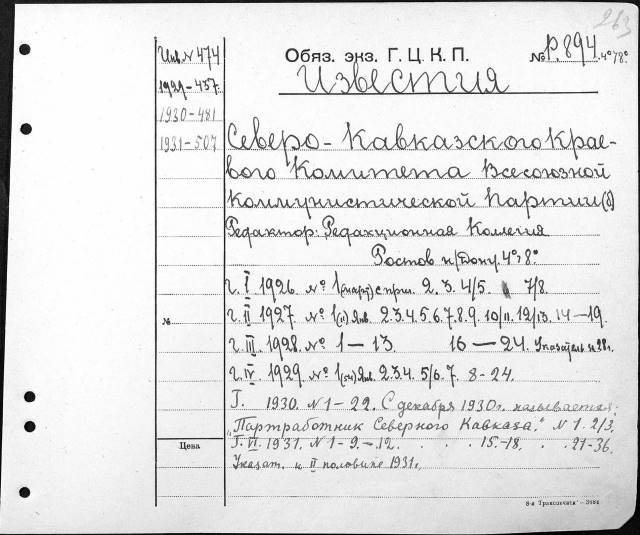 263
Обяз. экз. Г. Ц. К. П.
№ Р.894. 4° 8°.
Инв. N 474
1929-457.
1930-481
1931-507
Известия
Северо-Кавказского Крае-
вого Комитета Всесоюзной
Коммунистической Партии(б)
Редактор: Редакционная Коллегия
Ростов н/Дону. 4° 8°.
г. I 1926. № 1(март) с прил. 2. 3. 4/5. 7/8.
г. II 1927. № 1(11) Янв. 2.3.4.5.6.7.8.9. 10/11. 12/13. 14-19.
№
г. III. 1928. № 1-13. 16-24. Указатель к 28 г.
г. IV 1929. № 1(54) Янв. 2.3.4. 5/6. 7. 8-24.
Г. 1930. N 1-22. С декабря 1930г. называется:
"Партработник Северного Кавказа." N 1. 2/3.
Г. VI. 1931. N 1-9.-12. . . . 15-18. . . 21-36.
Цена
Указат. к II половине 1931г.
8-я Транспечать—3684